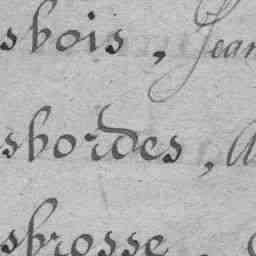 sbois, Jean
sbordes, A
sbrosse,